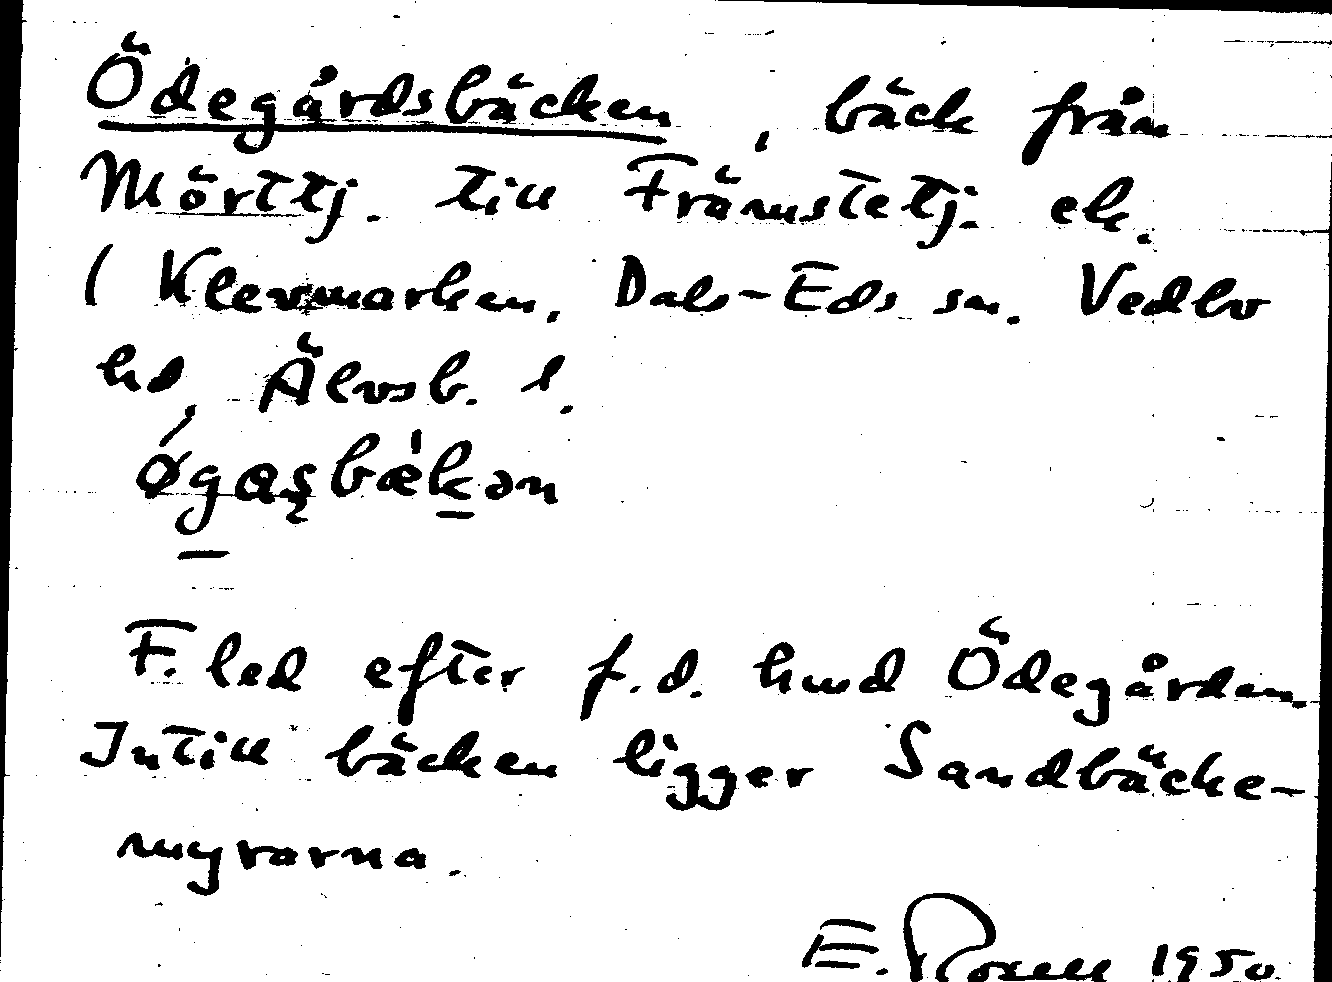 Ödegårdsbäcken, bäck från
Mörttj. till Främstetj. ek.
(Klevmarken, Dals-Eds sn. Vedbo
hd, Älvsb. l.
ǿgaʂbækən
F. led efter f.d. hmd Ödegården.
Intill bäcken ligger Sandbäcke-
myrarna.
E. Rosell 1950